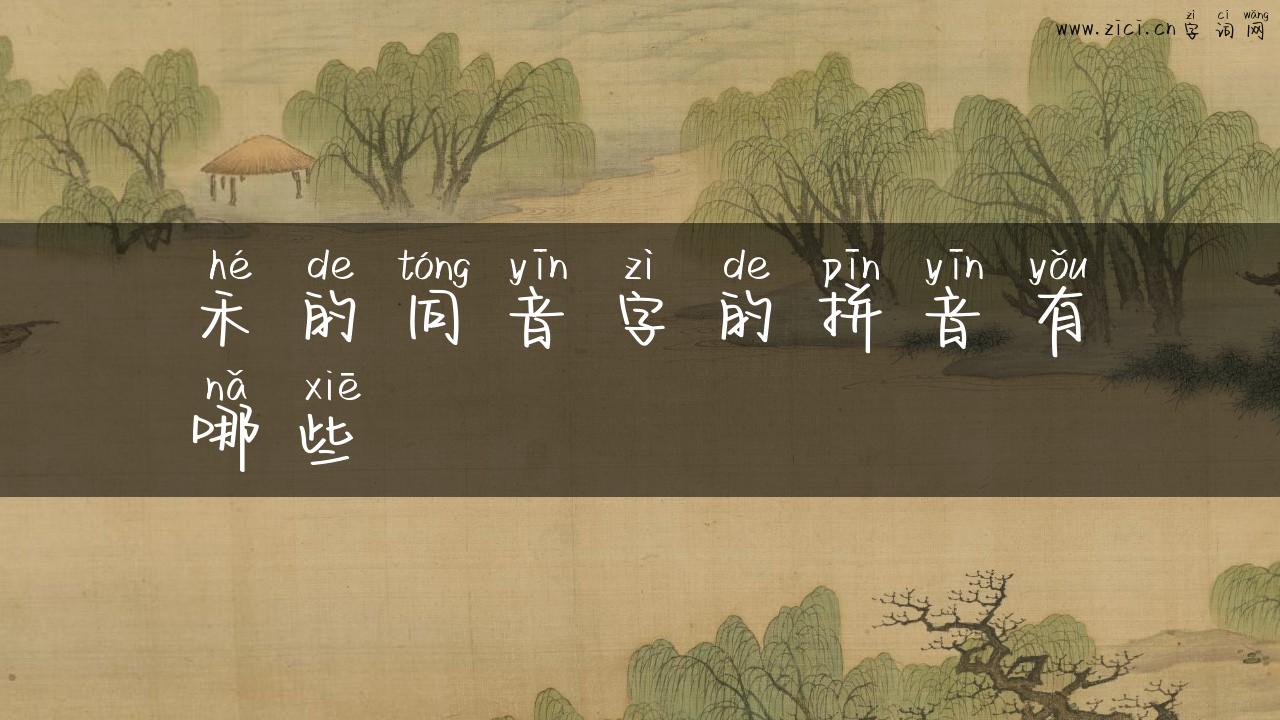 zì cí wǎng
www.zici.cn 字 词 网
hé de tóng yīn zì de pīn yīn yǒu
禾 的 同 音 字 的 拼 音 有
nǎ xiē
哪 些